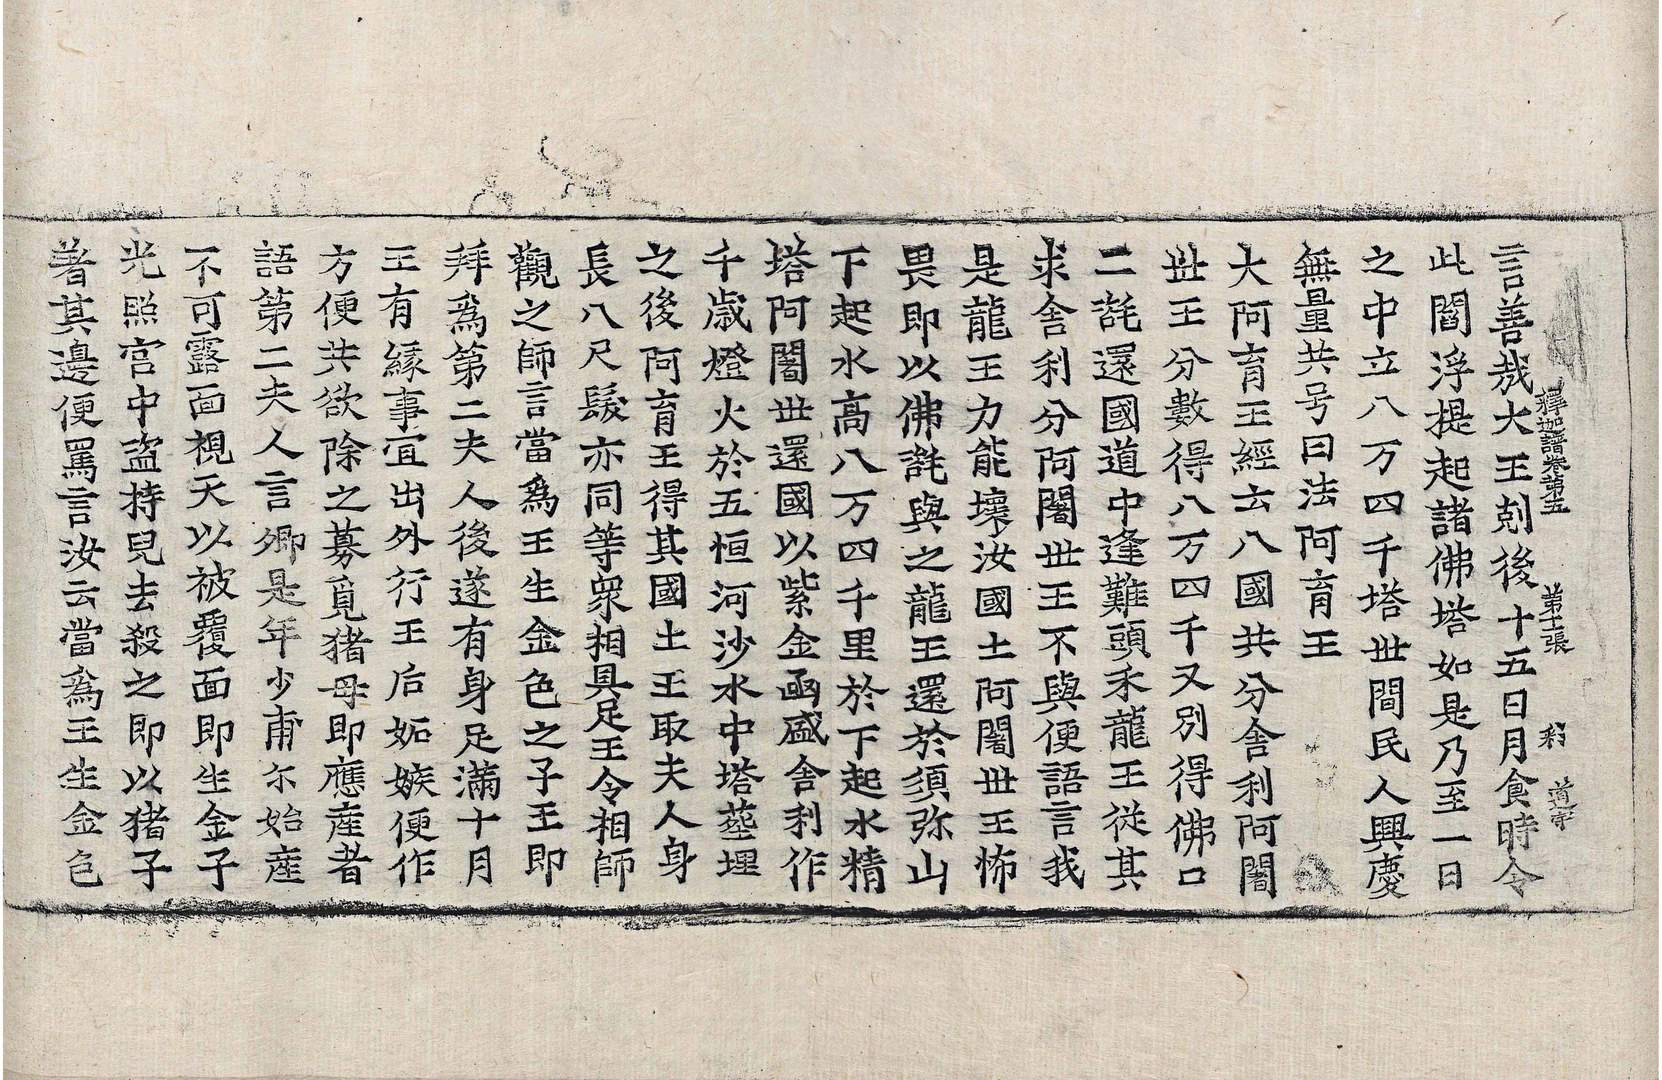 釋迦譜卷第五 第十張 豹 道寧
言善哉大王剋後十五日月食時令
此閻浮提起諸佛塔如是乃至一日
之中立八万四千塔世間民人興慶
無量共号曰法阿育王
大阿育王經云八國共分舍利阿闍
世王分數得八万四千又別得佛口
二髭還國道中逢難頭禾龍王從其
求舍利分阿闍世王不與便語言我
是龍王力能壞汝國土阿闍世王怖
畏即以佛髭與之龍王還於須弥山
下起水高八万四千里於下起水精
塔阿闍世還國以紫金函盛舍利作
千歲燈火於五恒河沙水中塔葬埋
之後阿育王得其國土王取夫人身
長八尺髮亦同等衆相具足王令相師
觀之師言當爲王生金色之子王即
拜爲第二夫人後遂有身足滿十月
王有緣事宜出外行王后妬嫉便作
方便共欲除之募覓猪母即應産者
語第二夫人言卿是年少甫尓始産
不可露面視天以被覆面即生金子
光照宫中盜持兒去殺之即以猪子
著其邊便罵言汝云當爲王生金色